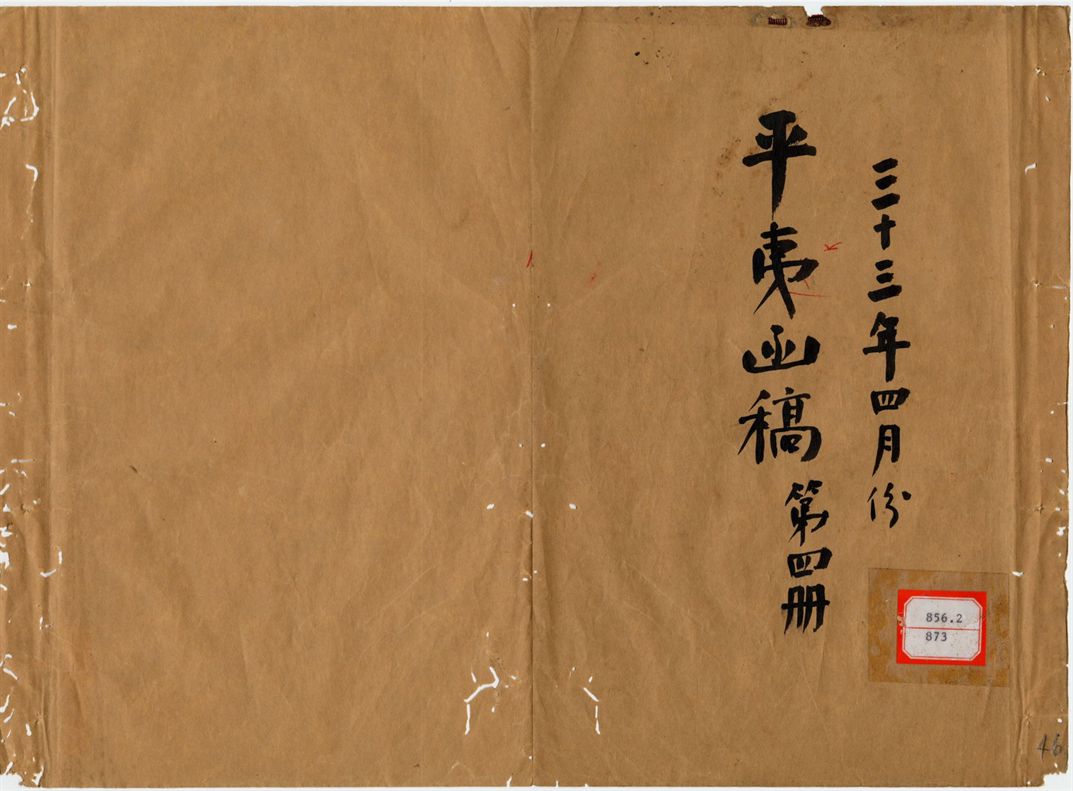 三十三年四月份
平夷函稿 第四册
856.2
873
46